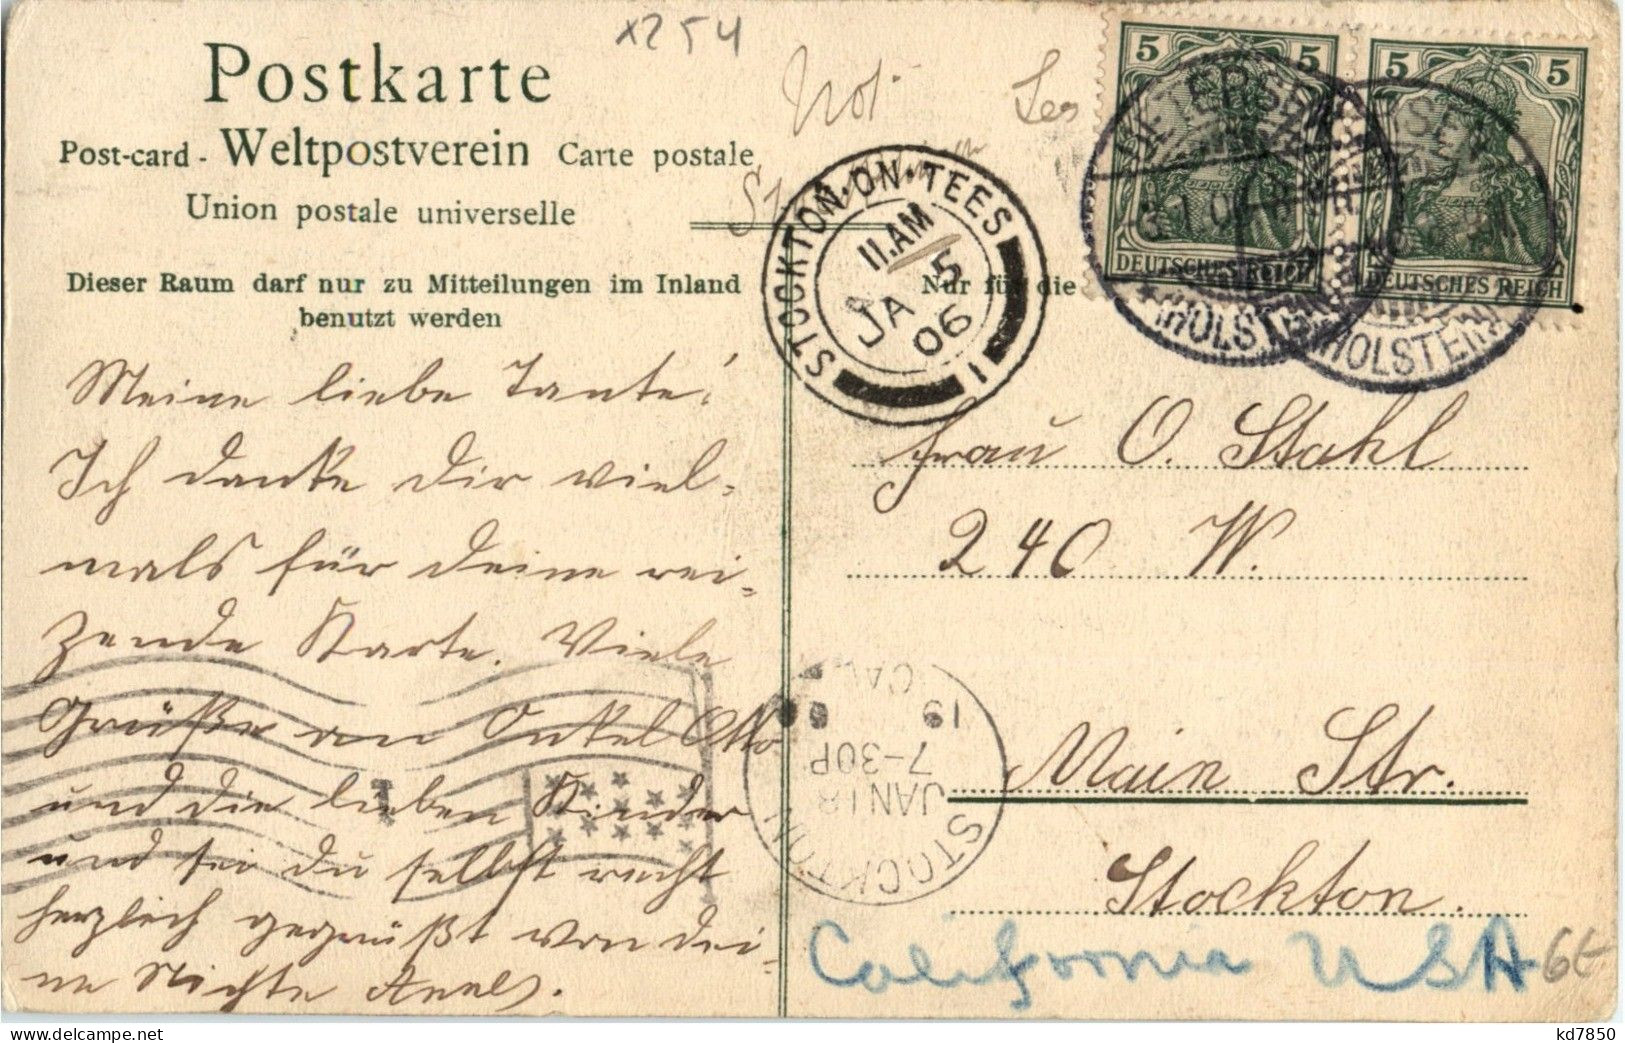 x254
Postkarte
Post-card - Weltpostverein Carte postale
Union postale universelle
Dieser Raum darf nur zu Mitteilungen im Inland
benutzt werden
Not
STOCKTON·ON·TEES
11.AM
JA 5
06
1
Nur für die
5 5
DEUTSCHES REICH
5 5
DEUTSCHES REICH
(HOLSTEIN)
(HOLSTEIN)
Meine liebe Tante!
Ich danke dir viel-
mals für deine rei-
zende Karte. Viele
Grüße an Onkel Otto
und die lieben Kinder
und sei du selbst recht
herzlich gegrüßt von dei-
ne Nichte
Frau O. Stahl
240 W.
Main Str.
Stockton.
California USA
6t
STOCKTON
JAN 18
7-30P
19
CAL.
kd7850